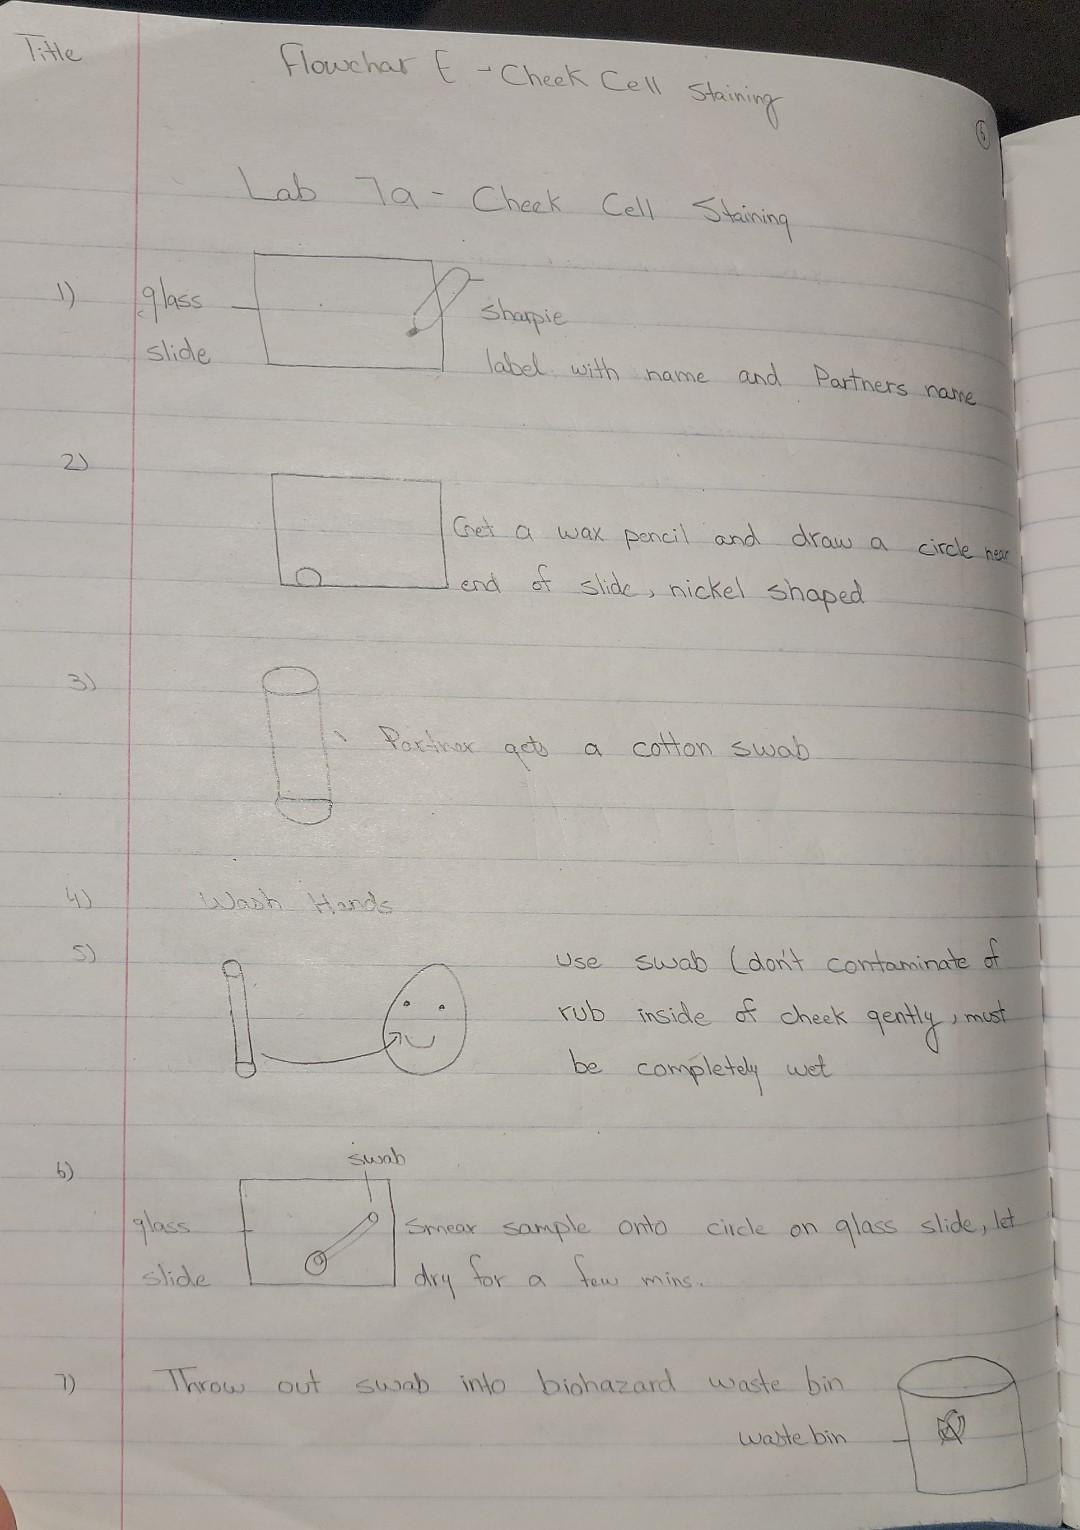 Title
Flowchar E - Cheek Cell Staining
6
Lab 7a - Cheek Cell Staining
1)
glass
slide
sharpie
label with name and Partners name
2)
Get a wax pencil and draw a circle near
end of slide, nickel shaped
3)
Partner gets a cotton swab
4) Wash Hands
5)
use swab (don't contaminate of
rub inside of cheek gently, must
be completely wet
6)
swab
glass
slide
Smear sample onto circle on glass slide, let
dry for a few mins.
7) Throw out swab into biohazard waste bin
waste bin